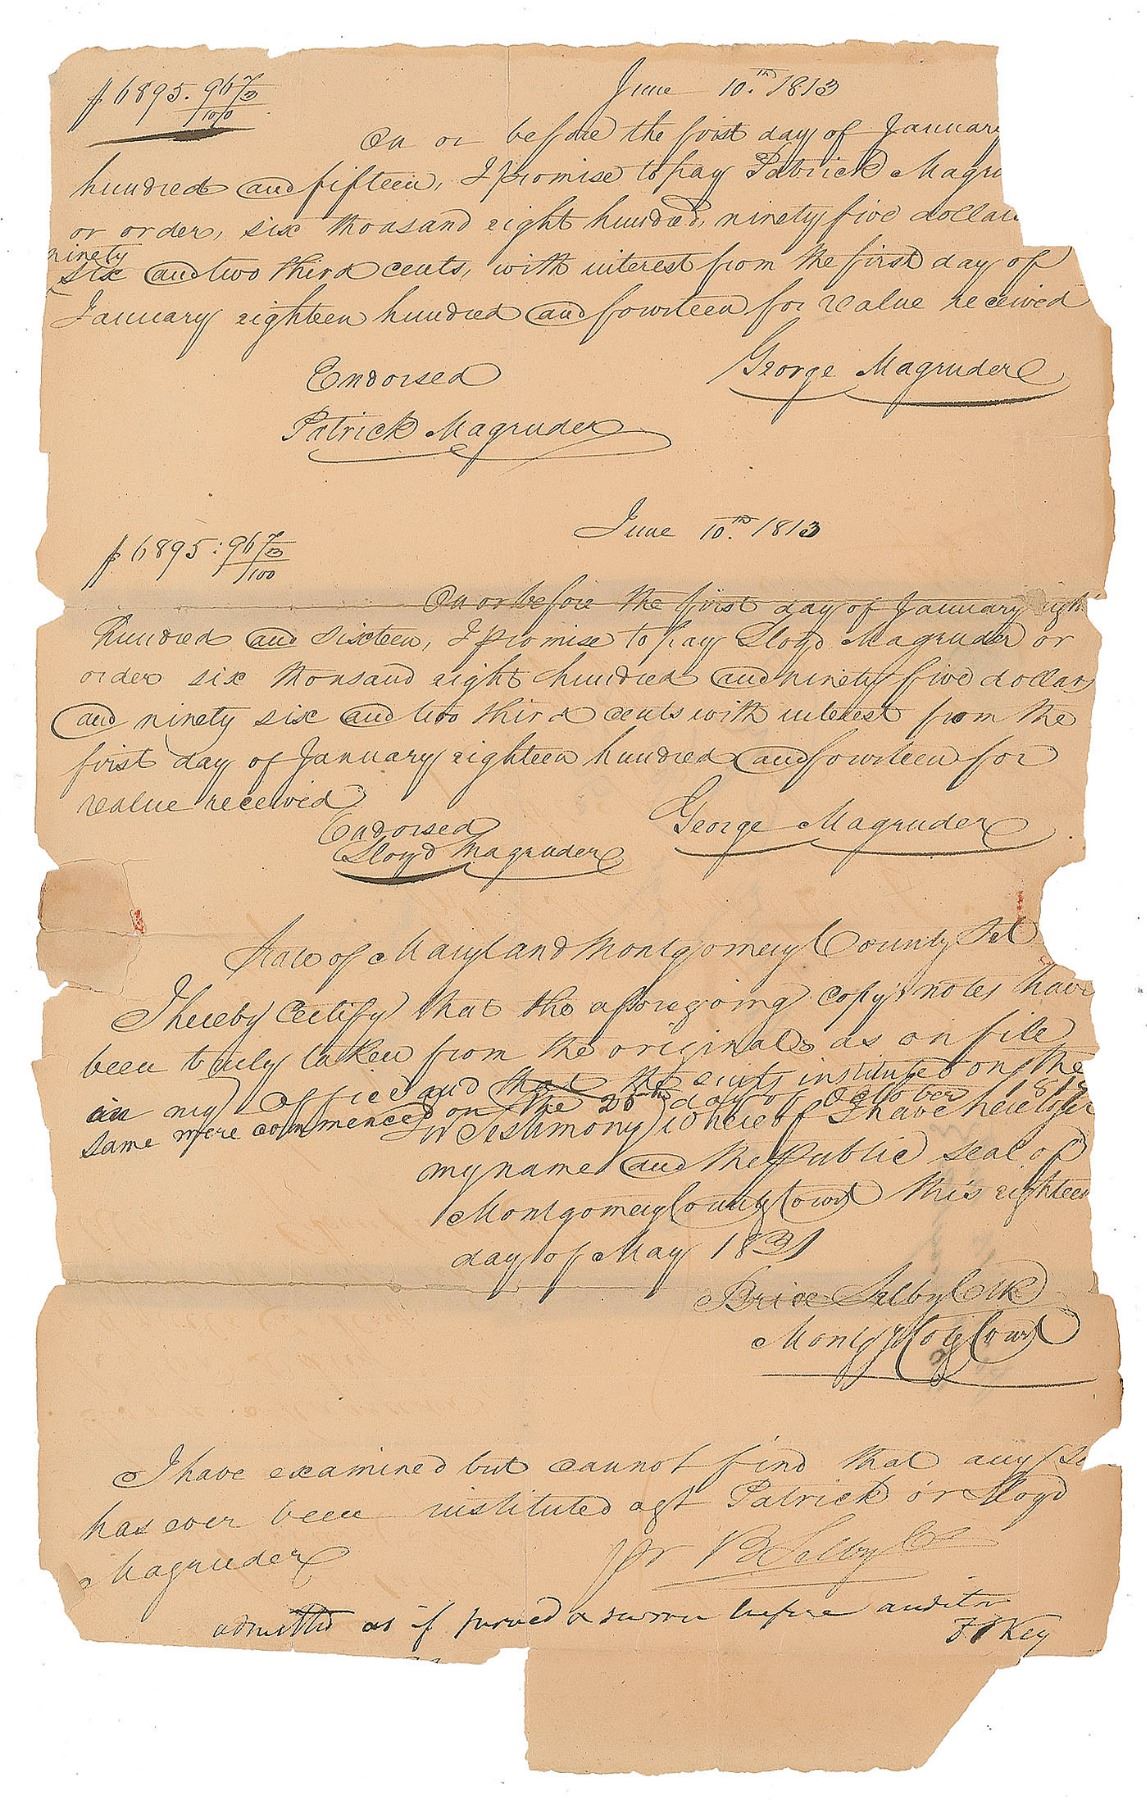 $6895.96⅔/100 June 10.th 1813
On or before the first day of January
hundred and fifteen, I promise to pay Patrick Magru
or order, six thousand eight hundred, ninety five dollars
ninety
six and two third cents, with interest from the first day of
January eighteen hundred and fourteen for value received
Endorsed George Magruder
Patrick Magruder
June 10.th 1813
$6895:96⅔/100
On or before the first day of January eigh
hundred and sixteen, I promise to pay Lloyd Magruder or
order six thousand eight hundred and ninety five dollars
and ninety six and two third cents with interest from the
first day of January eighteen hundred and fourteen for
value received
Endorsed George Magruder
Lloyd Magruder
State of Maryland Montgomery County Sct
I hereby certify that the aforegoing copy's notes have
been truly taken from the originals as on file
in my Office and that the suits instituted on the
same were commenced on the 20th day of October 1818
In Testimony whereof I have hereto
my name and the public seal of
Montgomery County Court this eighteen
day of May 1831
Brice Selby Clk
Montgy Coty Court
I have examined but cannot find that any
has ever been instituted agt Patrick or Lloyd
Magruder pr B Selby Clk
admitted as if proved & sworn before auditor
F S Key